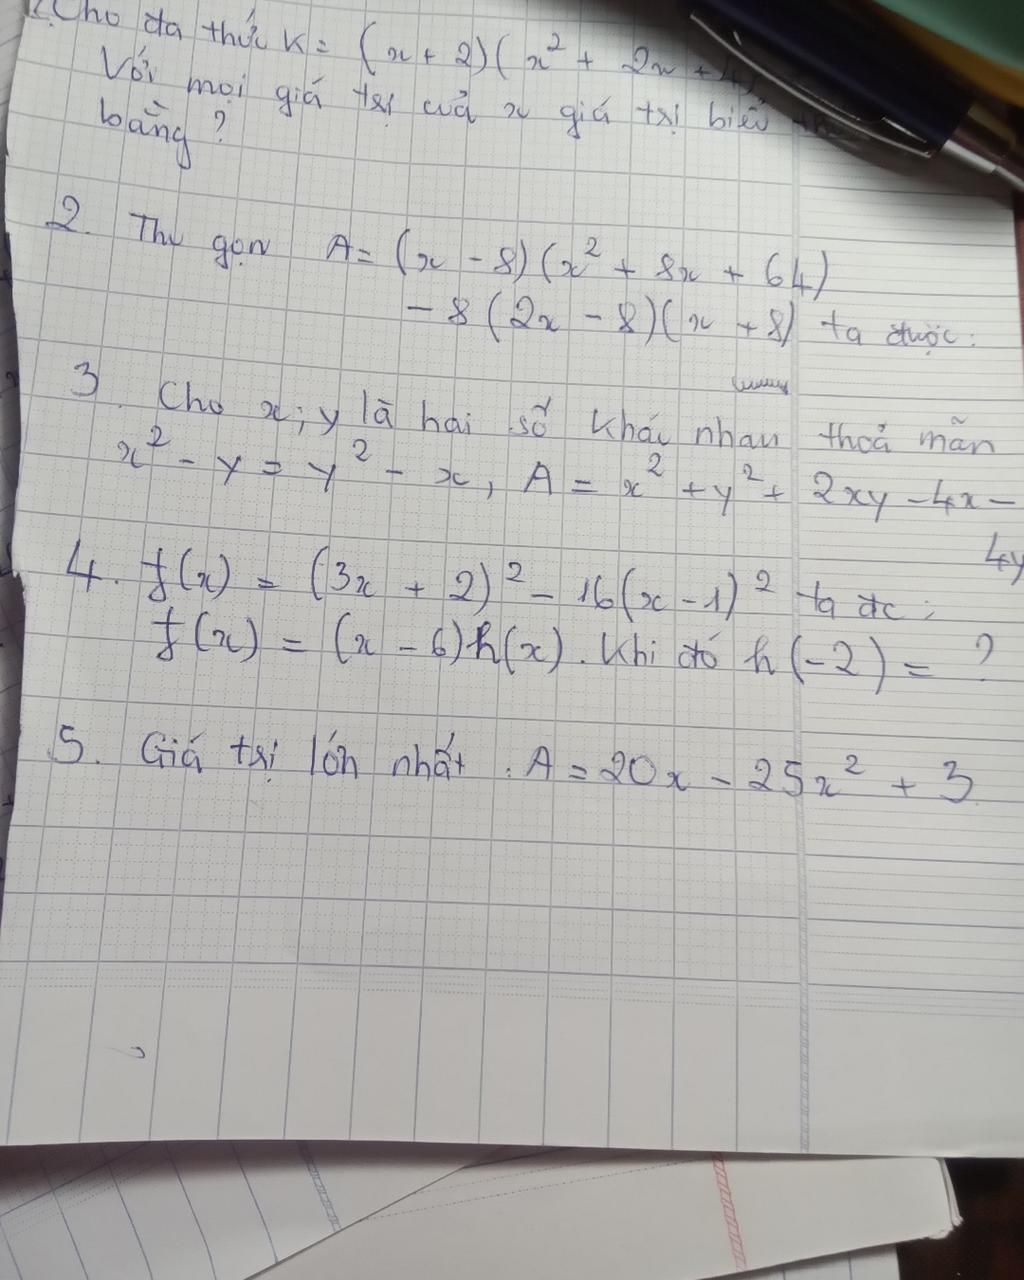 Cho đa thức K = (x + 2)(x² + 2x + 4
Với mọi giá trị của x giá trị biểu
bằng ?
2. Thu gọn A = (x - 8)(x² + 8x + 64)
- 8(2x - 8)(x + 8) ta được:
3. Cho x; y là hai số khác nhau thoả mãn
x² - y = y² - x, A = x² + y² + 2xy - 4x -
4y
4. f(x) = (3x + 2)² - 16(x - 1)² ta đc:
f(x) = (x - 6)h(x). Khi đó h(-2) = ?
5. Giá trị lớn nhất. A = 20x - 25x² + 3